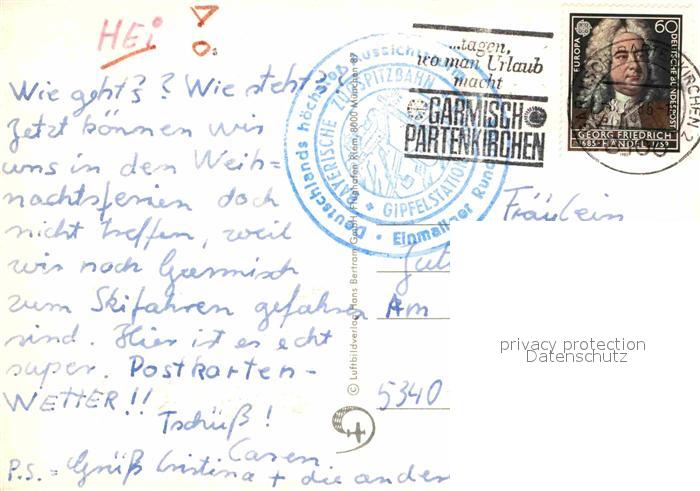 HEi!
Wie geht's? Wie steht's?
Jetzt können wir
uns in den Weih=
nachtsferien doch
nicht treffen, weil
wir nach Garmisch
zum Skifahren gefahren
sind. Hier ist es echt
super. Postkarten-
WETTER!!
Tschüß!
Caren
P.S. = Grüß Cristina + die ander
Deutschlands höchster Aussichts
Einmaliger Rund
BAYERISCHE ZUGSPITZBAHN
GIPFELSTATION
© Luftbildverlag Hans Bertram GmbH, Flughafen Riem, 8000 München 87
...tagen,
wo man Urlaub
macht
GARMISCH
PARTENKIRCHEN
EUROPA
60
DEUTSCHE BUNDESPOST
GEORG FRIEDRICH
1685 · HÄNDEL · 1759
Fräulein
Am
5340
privacy protection
Datenschutz